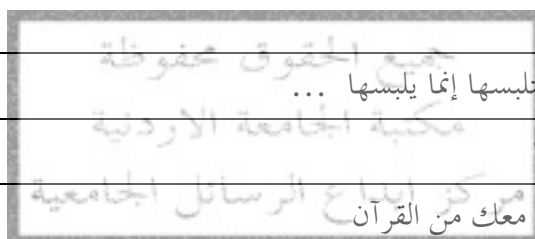 جميع الحقوق محفوظة
تلبسها إنما يلبسها ...
مكتبة الجامعة الاردنية
مركز ايداع الرسائل الجامعية
معك من القرآن